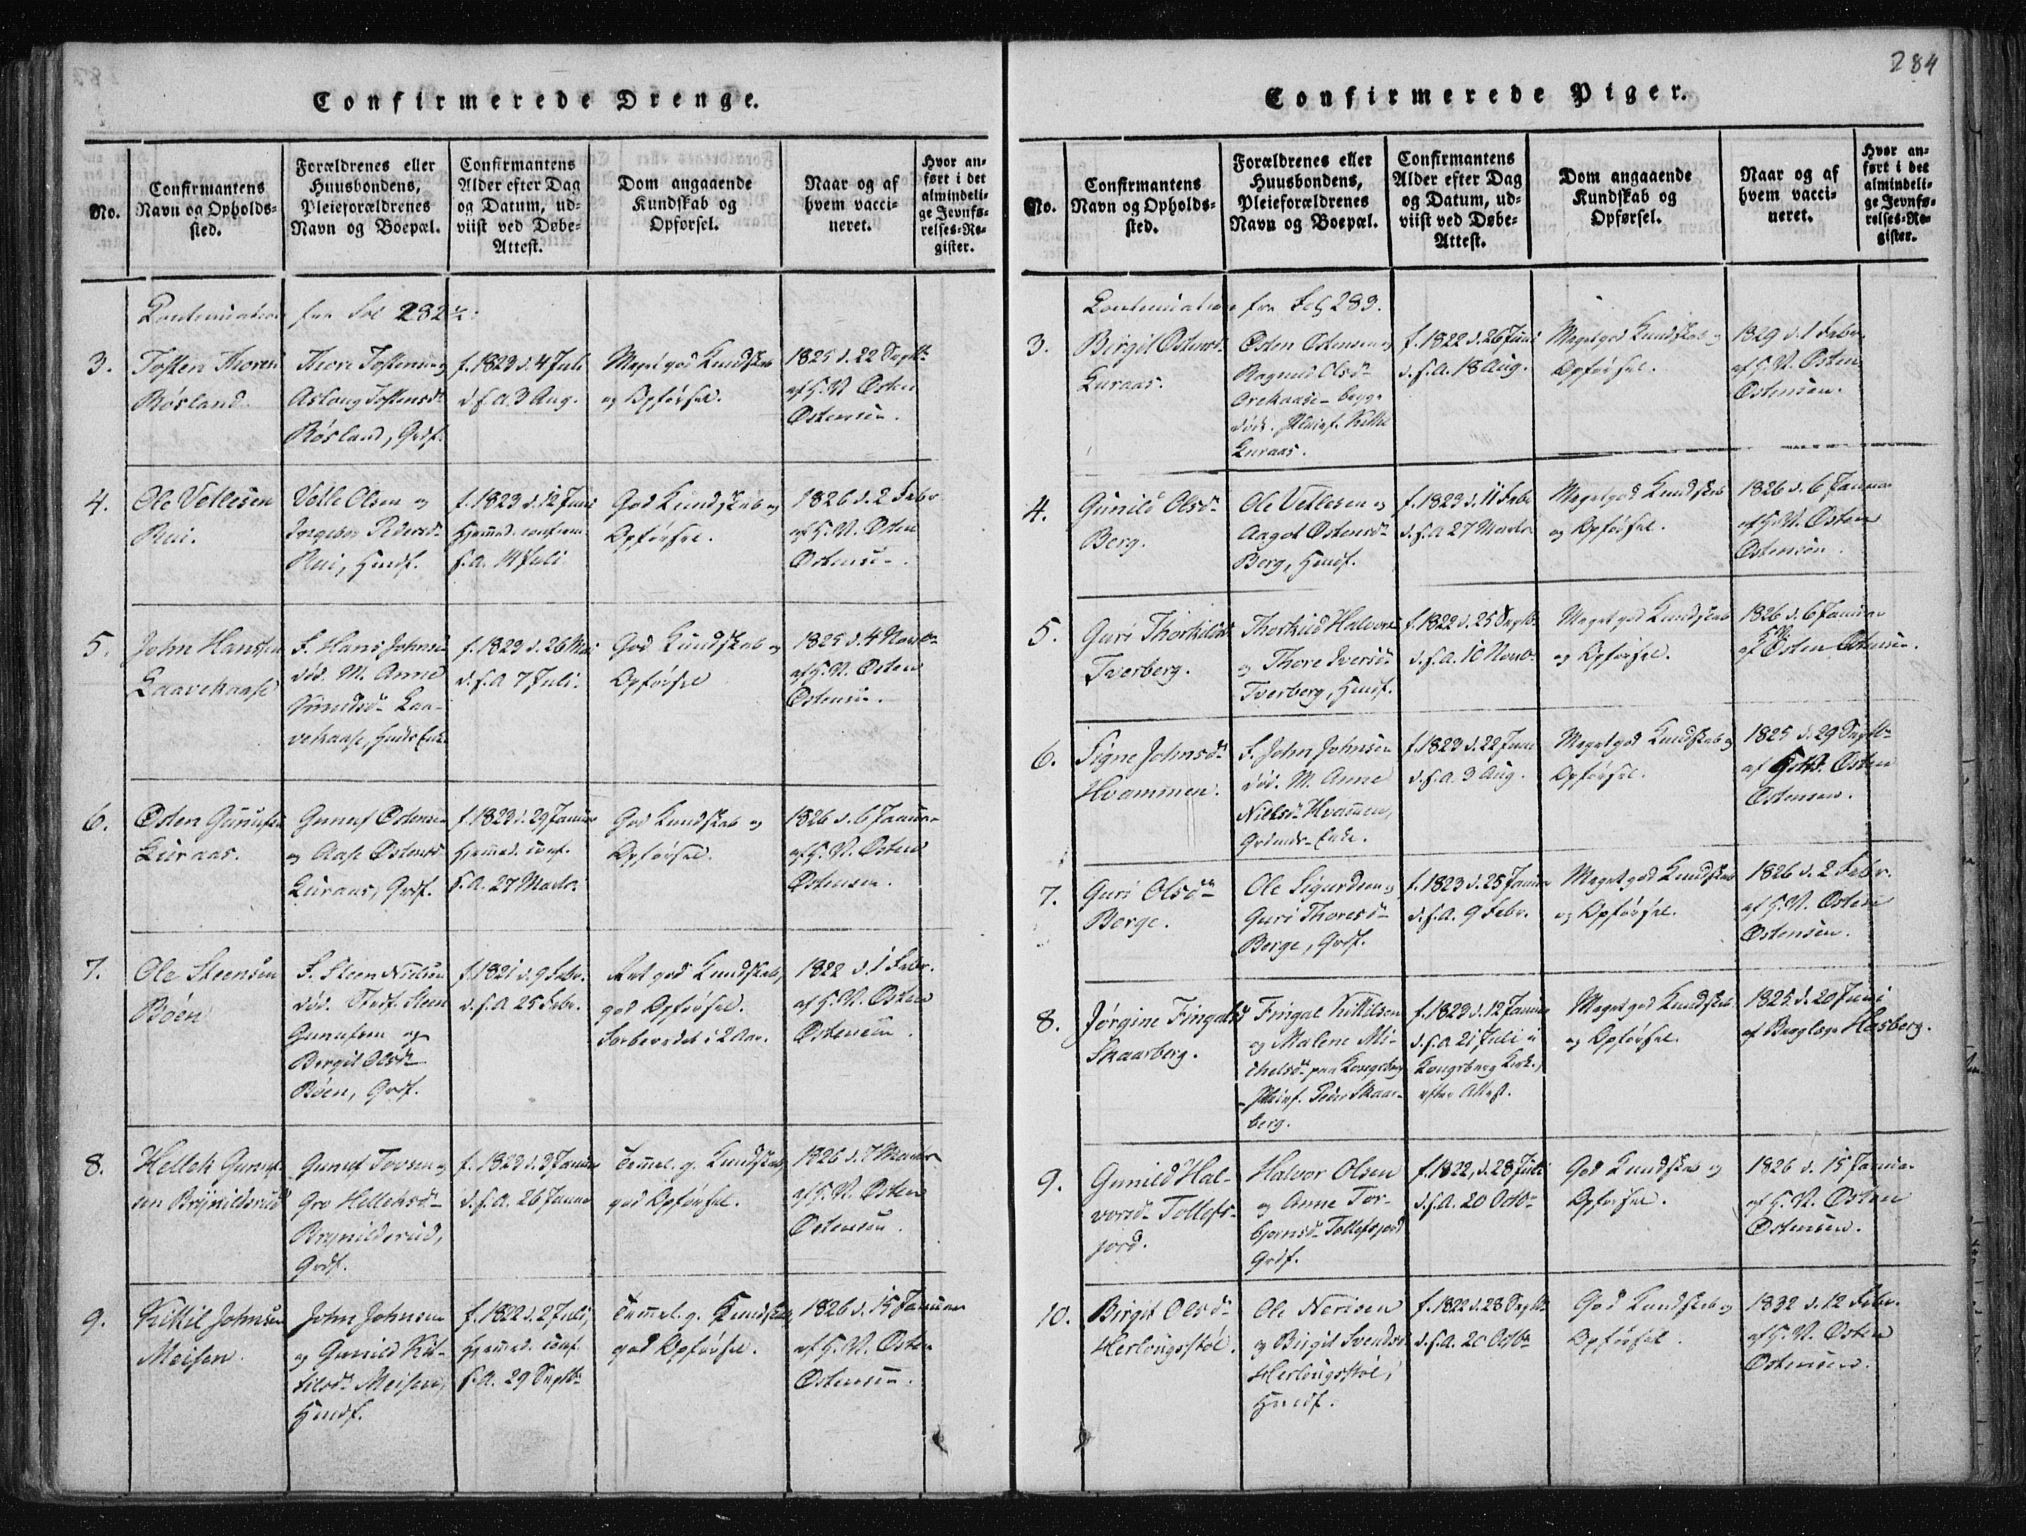 284
Confirmerede Drenge.
No.
Confirmantens
Navn og Opholds-
sted.
Forældrenes eller
Huusbondens,
Pleieforældrenes
Navn og Boepæl.
Confirmantens
Alder efter Dag
og Datum, ud-
viist ved Døbe-
Attest.
Dom angaaende
Kundskab og
Opførsel.
Naar og af
hvem vacci-
neret.
Hvor an-
ført i det
almindeli-
ge Jevnfø-
relses-Re-
gister.
Continuation fra Fol 282½:
3.
Tosten Thores
Røsland.
Thore Tostens og
Asloug Tostensd
Røsland, Grdf.
f. 1823 d. 4 Juli
d. s. A. 3 Aug.
Meget god Kundskab
og Opførsel.
1825 d. 22 Septbr
af G. N. Østen
Østensen.
4.
Ole Vetlesen
Rui.
Vetle Olsen og
Ingebor Pedersd
Rui, Huusf.
f. 1823 d. 12 Juni
Hjemmed. confirm
s. A. 14 Juli
God Kundskab og
Opførsel.
1826 d. 2 Febr
af G. N. Østen
Østensen.
5.
John Hansen
Laavekaase
F. Hans Johns
død. M. Anne
Laa-
vekaase, Huds Enke
f. 1823 d. 26 Mai
d. s. A 7 Juli.
God Kundskab og
Opførsel
1825 d. 4 Novbr
af G. N. Østen
Østensen.
6.
Østen Gunufsen
Luraas.
Gunuf Østens
og Aase Østensd
Luraas, Grdf.
f. 1823 d. 29 Januar
Hjemmed. conf.
s. A. 27 Marts.
God Kundskab og
Opførsel.
1826 d. 6 Januar
af G. N. Østen
Østensen.
7.
Ole Steensen
Bøen
F. Steen Nielsen
død. Stedf. Steen
Gunufsen og
Bergit Olsd
Bøen, Grdf.
f. 1821 d. 9 Febr.
d. s. A 25 Febr.
god Kundskab,
god Opførsel.
Forberedet i 2 Aar.
1822 d. 1 Febr.
af G. N. Østen
Østensen.
8.
Hellek Gunuf-
sen Brynildsrud
Gunuf Tovsen og
Gro Helleksd
Brynildsrud,
Grdf.
f. 1823 d. 3 Januar
d. s. A. 26 Januar
Temmel. g. Kundskab,
god Opførsel.
1826 d. 7 Marts
af G. N. Østen
Østensen.
9.
Kittil Johnsen
Meisen.
John Johnsen
og Gunild Kit-
tilsd Meisen,
Huusf.
f. 1822 d. 2 Juli,
Hjemmed. conf.
s. A. 29 Septbr
Temmel. g. Kundskab,
god Opførsel.
1826 d. 15 Januar
af G. N. Østen
Østensen.
Confirmerede Piger.
No.
Confirmantens
Navn og Opholds-
sted.
Forældrenes eller
Huusbondens,
Pleieforældrenes
Navn og Boepæl.
Confirmantens
Alder efter Dag
og Datum, ud-
viist ved Døbe-
Attest.
Dom angaaende
Kundskab og
Opførsel.
Naar og af
hvem vacci-
neret.
Hvor an-
ført i det
almindeli-
ge Jevnfø-
relses-Re-
gister.
Continuation fra Fol 283.
3.
Birgit Østensd
Luraas.
Østen Østensen og
Ragnild Olsd
Orekaase begge
døde. Pleief. Kittil
Luraas.
f. 1822 d. 26 Juni
d. s. A. 18 Aug.
Meget god Kundskab og
Opførsel.
1829 d. 1 Febr.
af G. N. Østen
Østensen.
4.
Gunild Olsd
Berg.
Ole Vetlesen og
Aagot Østensd
Berg, Huusf.
f. 1823 d. 11 Febr
d. s. A 27 Marts.
Meget god Kundskab
og Opførsel.
1826 d. 6 Januar
af G. N. Østen
Østensen.
5.
Guri Thorkilds
Tverberg.
Thorkild Halvors
og Thore Iversd
Tverberg, Huusf.
f. 1822 d. 25 Septb.
d. s. A. 10 Novb.
Meget god Kundskab
og Opførsel.
1826 d. 6 Januar
G. N.
af Østen Østensen.
6.
Signe Johnsd
Hvammen.
F. John Johnsen
død. M. Anne
Nielsd Hvammen,
Grdmds-Enke.
f. 1823 d. 22 Juni
d. s. A. 3 Aug.
Meget god Kundskab og
Opførsel.
1825 d. 29 Septb
af G. N. Østen
Østensen.
7.
Guri Olsd
Berge.
Ole Sigurdsen og
Guri Thoresd
Berge, Grdf.
f. 1823 d. 25 Januar
d. s. A. 9 Febr.
Meget god Kundskab
og Opførsel.
1826 d. 2 Febr.
af G. N. Østen
Østensen.
8.
Jørgine Fingalsd
Skaarberg.
Fingal Kittilsen
og Malene Mi-
chelsd paa Kongsberg
Pleief. Peder Skaar-
berg.
f. 1823 d. 12 Januar
d. s. A 21 Juli i
Kongsberg Kirke,
efter Attest.
Meget god Kundskab
og Opførsel.
1825 d. 20 Juni
af Berglæge Hesberg.
9.
Gunild Hal-
vorsd Tollefs-
jord.
Halvor Olsen
og Anne Tor-
bjørnsd Tollefsjord
Grdf.
f. 1822, d. 28 Juli
d. s. A. 20 Octb
God Kundskab og
Opførsel.
1826 d. 15 Januar
af G. N. Østen
Østensen.
10.
Birgit Olsd
Herlougsstøl.
Ole Nerisen
og Birgit Svendsd
Herlougsstøl,
Huusf.
f. 1822 d. 28 Septb
d. s. A. 20 Octb
God Kundskab og
Opførsel.
1832 d. 12 Febr.
af G. N. Østen
Østensen.